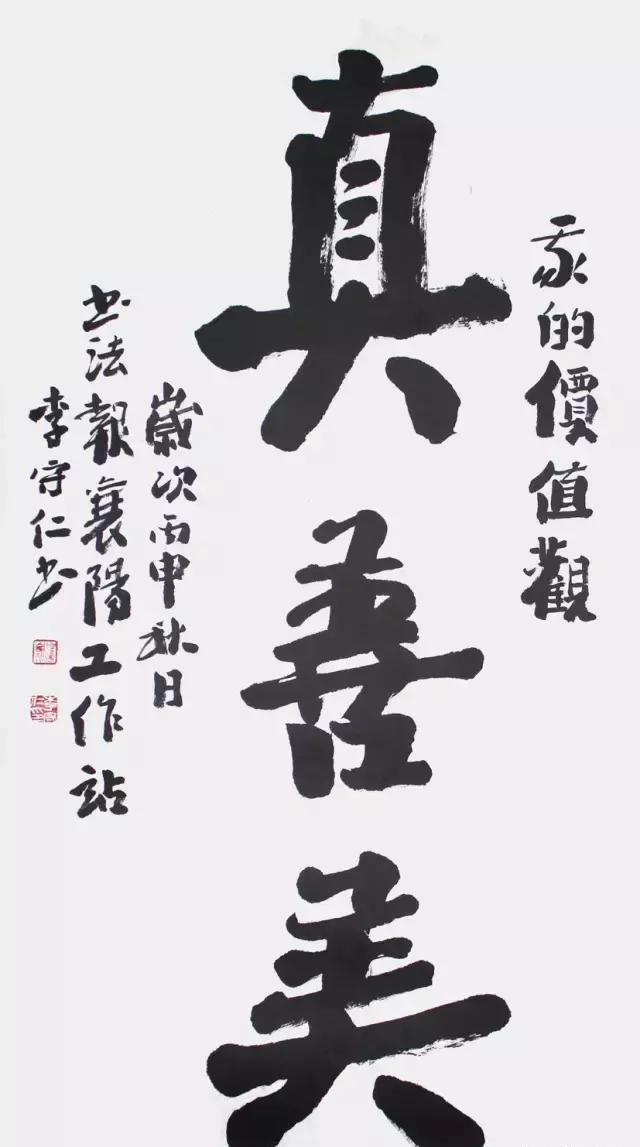 我的價值觀
真善美
歲次丙申秋日
书法報襄陽工作站
李守仁书